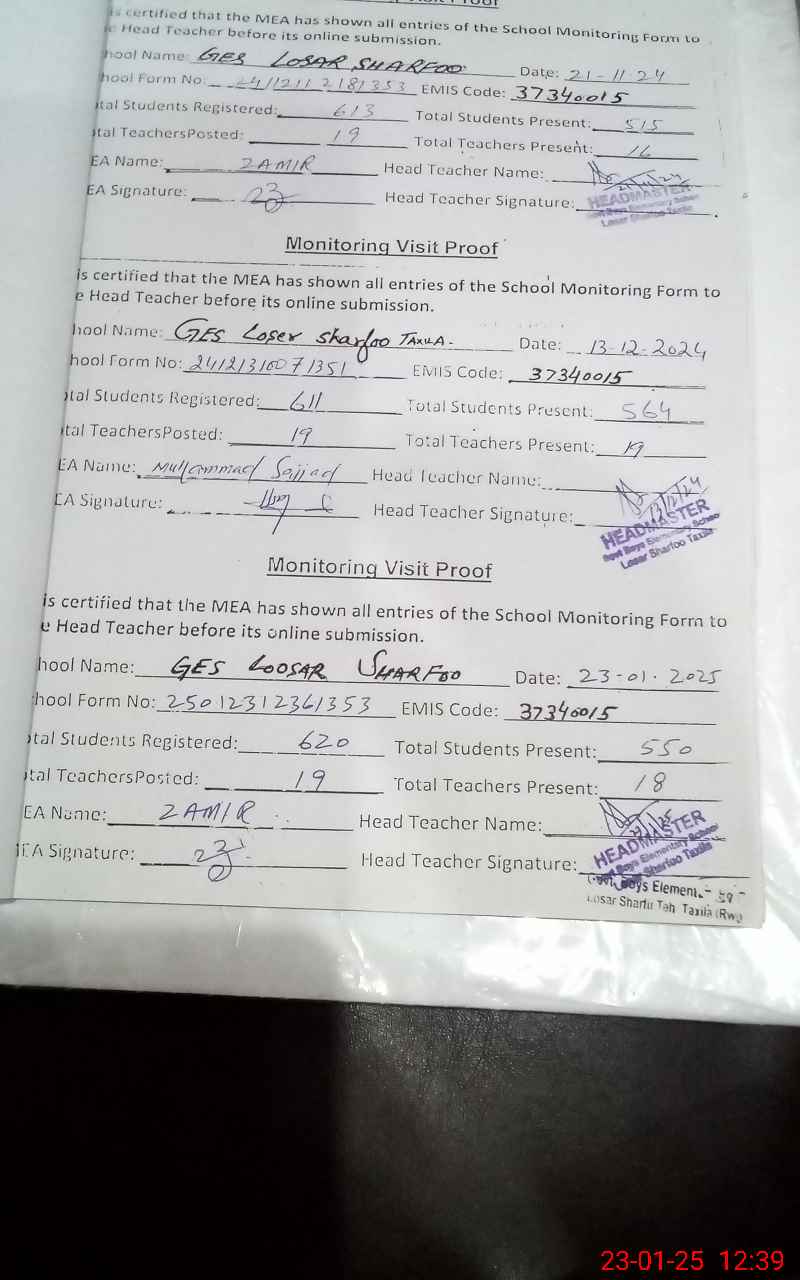 is certified that the MEA has shown all entries of the School Monitoring Form to
e Head Teacher before its online submission.
hool Name: GES LOSAR SHARFOO Date: 21-11-24
hool Form No: 24112112181353 EMIS Code: 37340015
tal Students Registered: 613 Total Students Present: 515
tal TeachersPosted: 19 Total Teachers Present: 16
EA Name: ZAMIR Head Teacher Name:
EA Signature: Head Teacher Signature:
HEADMASTER
Losar Sharfoo Taxila
Monitoring Visit Proof
is certified that the MEA has shown all entries of the School Monitoring Form to
e Head Teacher before its online submission.
hool Name: GES Loser sharfoo TAXILA. Date: 13-12-2024
hool Form No: EMIS Code: 37340015
tal Students Registered: 611 Total Students Present: 564
tal TeachersPosted: 19 Total Teachers Present: 19
EA Name: Muhammad Sajjad Head Teacher Name:
EA Signature: Head Teacher Signature:
13/12/24
HEADMASTER
Govt Boys Elementary School
Losar Sharfoo Taxila
Monitoring Visit Proof
is certified that the MEA has shown all entries of the School Monitoring Form to
e Head Teacher before its online submission.
hool Name: GES LOOSAR SHARFOO Date: 23-01-2025
hool Form No: 25012312361353 EMIS Code: 37340015
tal Students Registered: 620 Total Students Present: 550
tal TeachersPosted: 19 Total Teachers Present: 18
EA Name: ZAMIR Head Teacher Name:
EA Signature: Head Teacher Signature:
HEADMASTER
Boys Elementary School
Sharfoo Taxila
Boys Element
Losar Sharfu Teh Taxila (Rwp
23-01-25 12:39